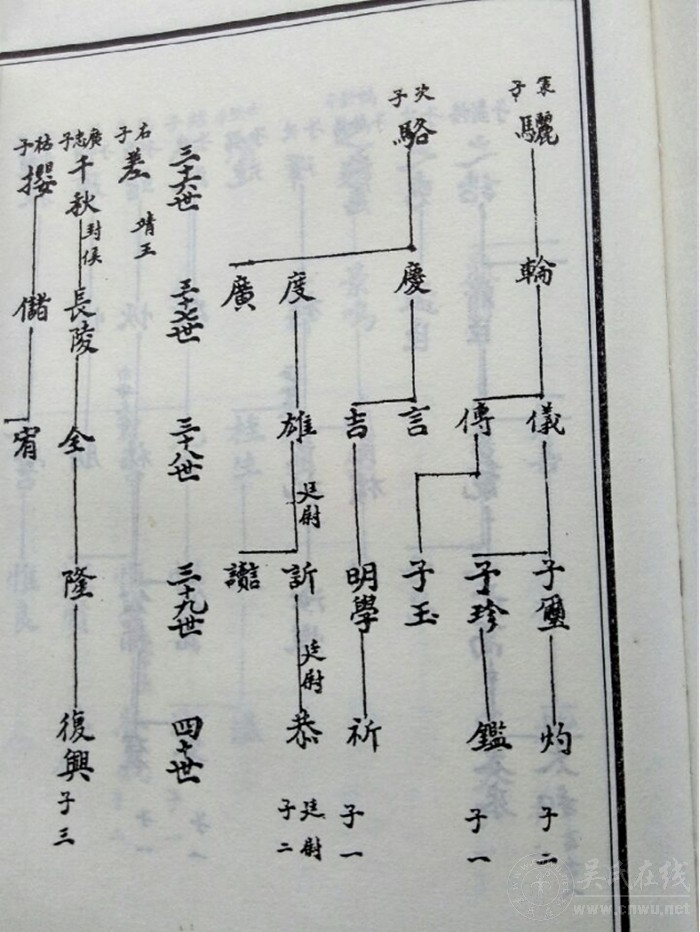 子
驪
輪
儀
傳
子璽
子珍
子玉
灼
子二
鑑
子一
次子
駱
慶
度
廣
言
吉
雄
廷尉
明學
訢
讚
廷尉
祈
子一
恭
廷尉
子二
三十六世
三十七世
三十八世
三十九世
四十世
右子
差
靖王
廣志子
千秋
封侯
長陵
全
隆
復興
子三
祜子
攖
儲
宥
吴氏在线
www.cnwu.net